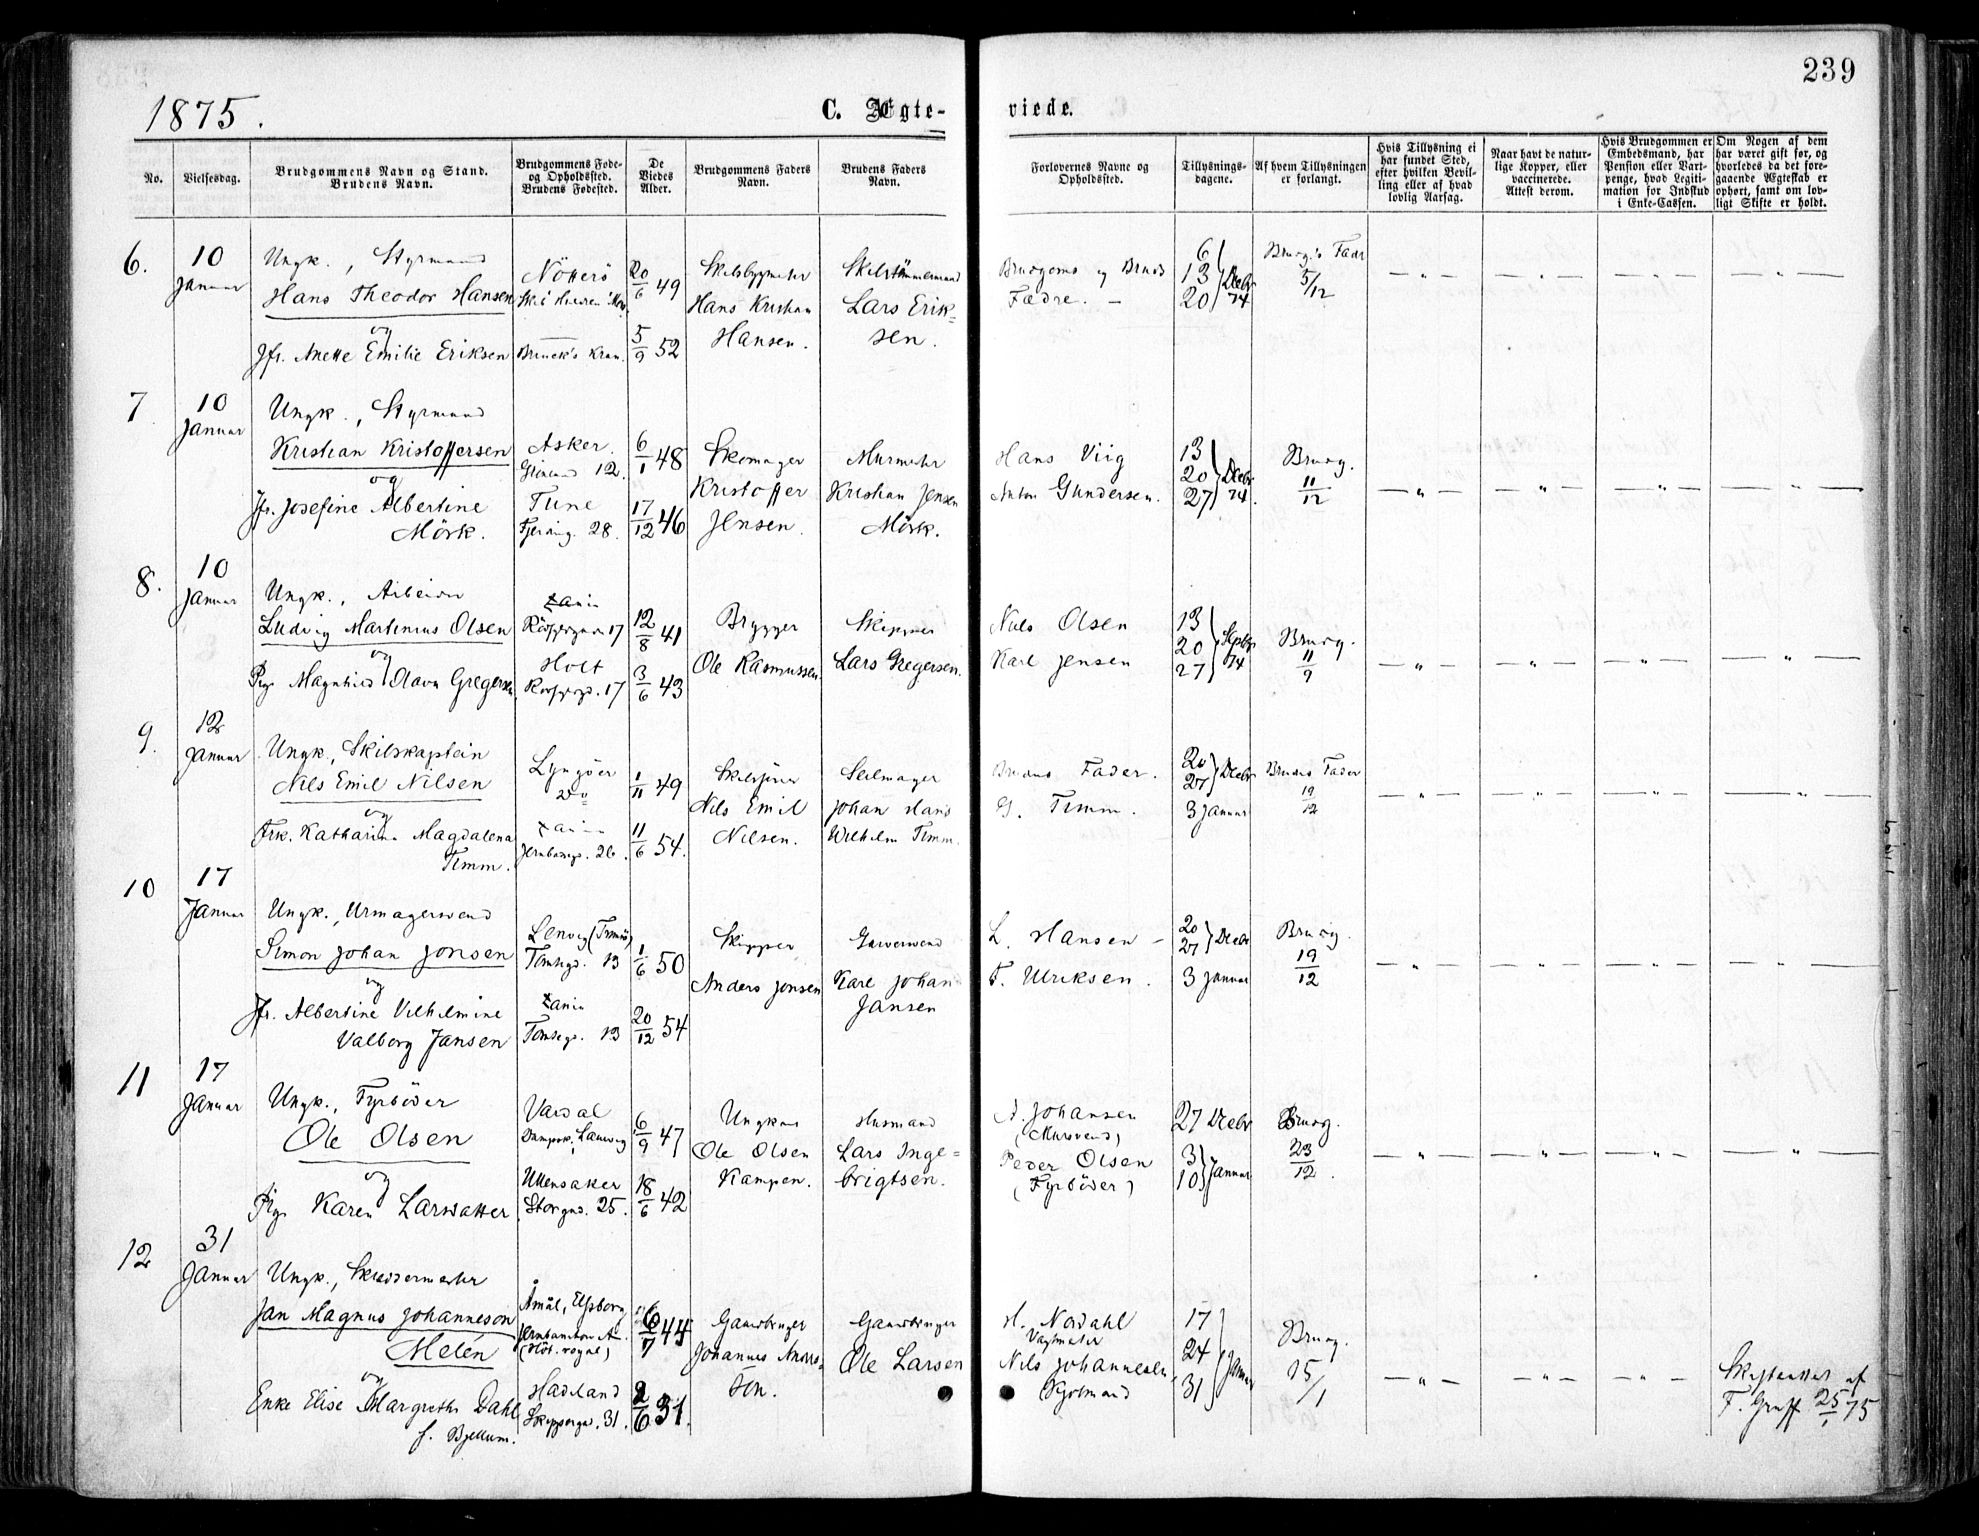 239
1875.
C. Ægte-
viede.
No.
Vielsesdag.
Brudgommens Navn og Stand.
Brudens Navn.
Brudgommens Føde-
og Opholdssted.
Brudens Fødested.
De
Viedes
Alder.
Brudgommens Faders
Navn.
Brudens Faders
Navn.
Forlovernes Navne og
Opholdssted.
Tillysnings-
dagene.
Af hvem Tillysningen
er forlangt.
Hvis Tillysning ei
har fundet Sted,
efter hvilken Bevil-
ling eller af hvad
lovlig Aarsag.
Naar havt de natur-
lige Kopper, eller
vaccinerede.
Attest derom.
Hvis Brudgommen er
Embedsmand, har
Pension eller Vart-
penge, hvad Legiti-
mation for Indskud
i Enke-Cassen.
Om Nogen af dem
har været gift før, og
hvorledes da det fore-
gaaende Ægteskab er
ophørt, samt om lov-
ligt Skifte er holdt.
6.
10
Januar
Ungk., Styrmand
Hans Theodor Hansen
og
Jfr. Anette Emilie Eriksen
Nötterö
20/6 49
5/9 52
Skibsbygmester
Hans Kristian
Hansen.
Skibstömmermand
Lars Erik=
sen.
Brudgoms og Bruds
Fædre. —
6
13
20
Decbr
74
Brudg's Fader
5/12
7
10
Januar
Ungk., Styrmand
Kristian Kristoffersen
og
Jfr. Josefine Albertine
Mörk.
Asker.
12.
Tune
28.
6/1 48
17/12 46
Skomager
Kristoffer
Jensen.
Murmester
Kristian Jensen
Mörk.
Hans Viig
Anton Gundersen.
13
20
27
Decbr
74.
Brudg.
11/12
8.
10
Januar
Ungk., Arbeider
Ludvig Martinius Olsen
og
Pige Magnhild Olava Gregersen
17
Holt
17
12/8 41
3/6 43
Brygger
Ole Rasmussen.
Skipper
Lars Gregersen.
Niels Olsen
Karl Jensen
13
20
27
Septbr
74
Brudg.
11/9
9.
12
Januar
Ungk., Skibskaptein
Nils Emil Nilsen
og
Frk. Katharina Magdalena
Timm.
Lyngöer
26.
1/11 49
11/6 54.
Nils Emil
Nilsen.
Seilmager
Johan Hans
Wilhelm Timm.
Brudens Fader.
G. Timm.
20
27
Decbr
3 Januar
Brudens Fader
19/12
10
17
Januar
Ungk., Urmagersvend
Simon Johan Jonsen
og
Jfr. Albertine Vilhelmine
Valborg Jansen
Lenvig (Tromsö)
Tomtegd. 13
Tomtegd. 13
1/6 50
20/12 54
Skipper
Anders Jonsen
Garversvend
Karl Johan
Jansen
L. Hansen —
F. Ulriksen.
20
27
Decbr
3 Januar
Brudg.
19/12
11
17
Januar
Ungk., Fyrböder
Ole Olsen
og
Pige Karen Larsdatter
Vardal
Dampsk. Lauvig
Ullensaker
Storgad. 25.
6/9 47
18/6 42
Ungkar
Ole Olsen
Kampen.
Husmand
Lars Inge=
brigtsen.
A. Johansen
(Mursvend)
Peder Olsen
(Fyrböder)
27 Decbr
3
10
Januar
Brudg.
23/12.
12
31
Januar
Ungk., Skræddermester
Jan Magnus Johanneson
Melén
og
Enke Elise Margrethe Dahl
f. Bjellum.
Åmål, Elfsborg
Hadeland
Skippergd. 31.
6/7 44
2/6 31.
Gaardbruger
Johannes Anders=
son.
Gaardbruger
Ole Larsen
H. Nordahl
Vagtmester
Nils Johannesen,
17
24
31
Januar
Brudg.
15/1
Skifteattest af
F. Graff 25/1 75